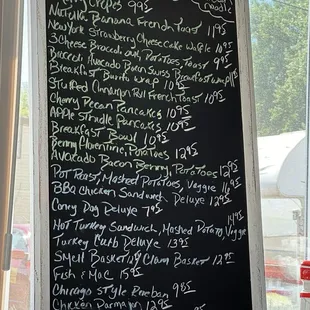 Crepes 9.95
Nutella Banana French Toast 11.95
New York Strawberry Cheese Cake Waffle 10.95
3 Cheese Broccoli Potatoes, Toast 9.95
Broccoli Avocado Bacon Swiss Breakfast Wrap
Breakfast Burrito Wrap 10.95
Stuffed Cinnamon Roll French Toast 10.95
Cherry Pecan Pancakes 10.95
Apple Strudle Pancakes 10.95
Breakfast Bowl 10.95
Benny Florentine, Potatoes 12.95
Avocado Bacon Benny, Potatoes
Pot Roast, Mashed Potatoes, Veggie
BBQ Chicken Sandwich Deluxe 12.95
Coney Dog Deluxe 7.95
14.95
Hot Turkey Sandwich, Mashed Potato, Veggie
Turkey Club Deluxe 13.95
Smelt Basket Clam Basket 12.95
Fish & Mac 15.95
Chicago Style Rueban 9.95
Chicken Parmajan 12.95